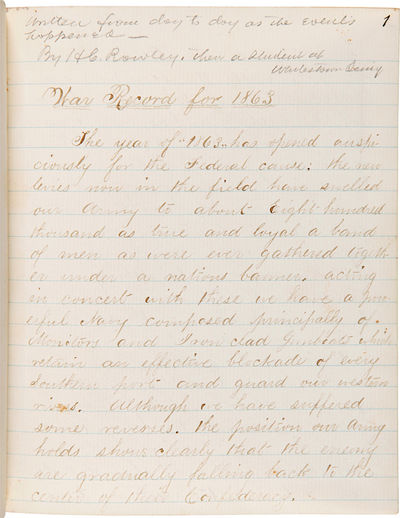 Written from day to day as the events 1
happened —
By H. C. Rowley. then a student at
War Record for 1863
The year of "1863" has opened auspi-
ciously for the Federal cause: the new
levies now in the field have swelled
our Army to about Eight hundred
thousand as true and loyal a band
of men as were ever gathered togeth-
er under a nations banner, acting
in concert with these we have a pow-
erful Navy composed principally of
Monitors and Iron clad Gunboats which
retain an effective blockade of every
southern port and guard our western
rivers. Although we have suffered
some reverses. the position our Army
holds shows clearly that the enemy
are gradually falling back to the
center of their Confederacy.